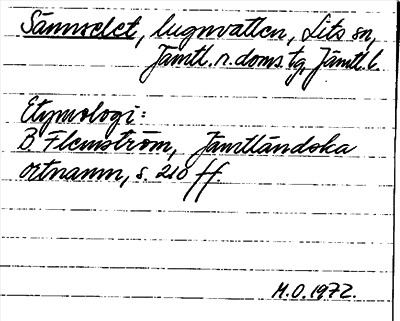 Sännselet, lugnvatten, Lits sn,
Jämtl. n. doms. tg, Jämtl. l.
Etymologi:
B Flemström, Jämtländska
ortnamn, s. 210 ff.
M.O. 1972.